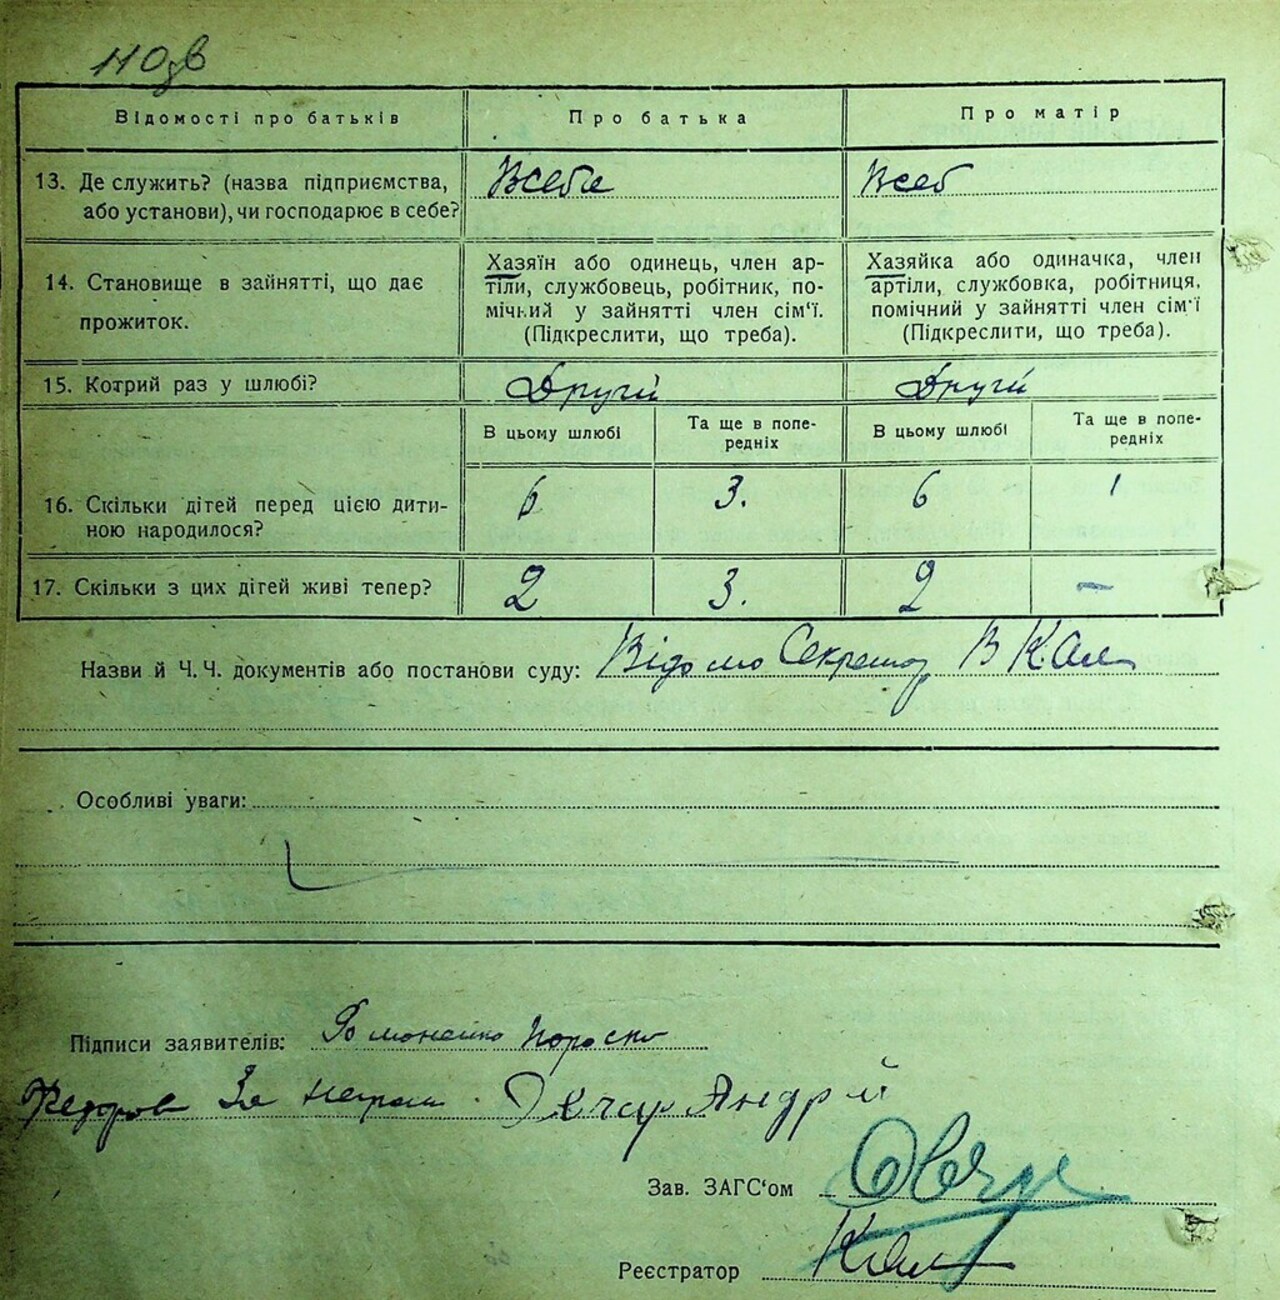 Відомості про батьків Про батька Про матір
13. Де служить? (назва підприємства, або установи), чи господарює в себе? Всебе Всеб
14. Становище в зайнятті, що дає прожиток.
Хазяїн або одинець, член ар-
тіли, службовець, робітник, по-
мічний у зайнятті член сім'ї.
(Підкреслити, що треба).
Хазяйка або одиначка, член
артіли, службовка, робітниця,
помічний у зайнятті член сім'ї
(Підкреслити, що треба).
15. Котрий раз у шлюбі? Другий Другий
В цьому шлюбі Та ще в попе-редніх В цьому шлюбі Та ще в попе-редніх
16. Скільки дітей перед цією дити-ною народилося? 6 3. 6 1
17. Скільки з цих дітей живі тепер? 2 3. 2 –
Назви й Ч. Ч. документів або постанови суду: Відомо Секретар
Особливі уваги:
Підписи заявителів:
За Андрій
Зав. ЗАГС'ом
Реєстратор